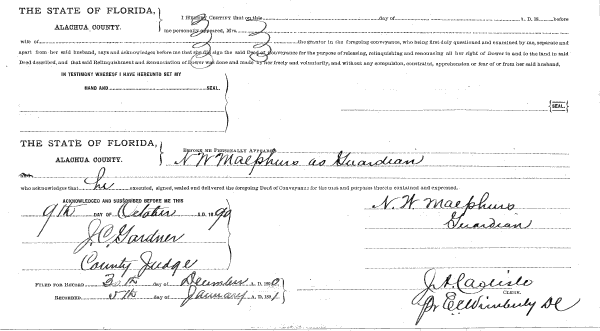 THE STATE OF FLORIDA,
ALACHUA COUNTY.
I HEREBY CERTIFY that on this day of A. D. 18 before
me personally appeared, Mrs.
wife of the grantor in the foregoing conveyance, who being first duly questioned and examined by me, separate and
apart from her said husband, says and acknowledges before me that she did sign the said Deed of Conveyance for the purpose of releasing, relinquishing and renouncing all her right of Dower in and to the land in said
Deed described, and that said Relinquishment and Renunciation of Dower was done and made by her freely and voluntarily, and without any compulsion, constraint, apprehension or fear of or from her said husband.
IN TESTIMONY WHEREOF I HAVE HEREUNTO SET MY
HAND AND SEAL.
SEAL.
THE STATE OF FLORIDA,
ALACHUA COUNTY.
BEFORE ME PERSONALLY APPEARED
N. W. Maephurs as Guardian
who acknowledges that he executed, signed, sealed and delivered the foregoing Deed of Conveyance for the uses and purposes therein contained and expressed.
ACKNOWLEDGED AND SUBSCRIBED BEFORE ME THIS
9th DAY OF October A. D. 1890
N. W. Maephurs
Guardian
J. C. Gardner
County Judge
FILED FOR RECORD 30th day of December A. D. 1890
RECORDED 5th day of January A. D. 1891
J. A. Carlisle
CLERK.
Pr E. C. Wimberly DC